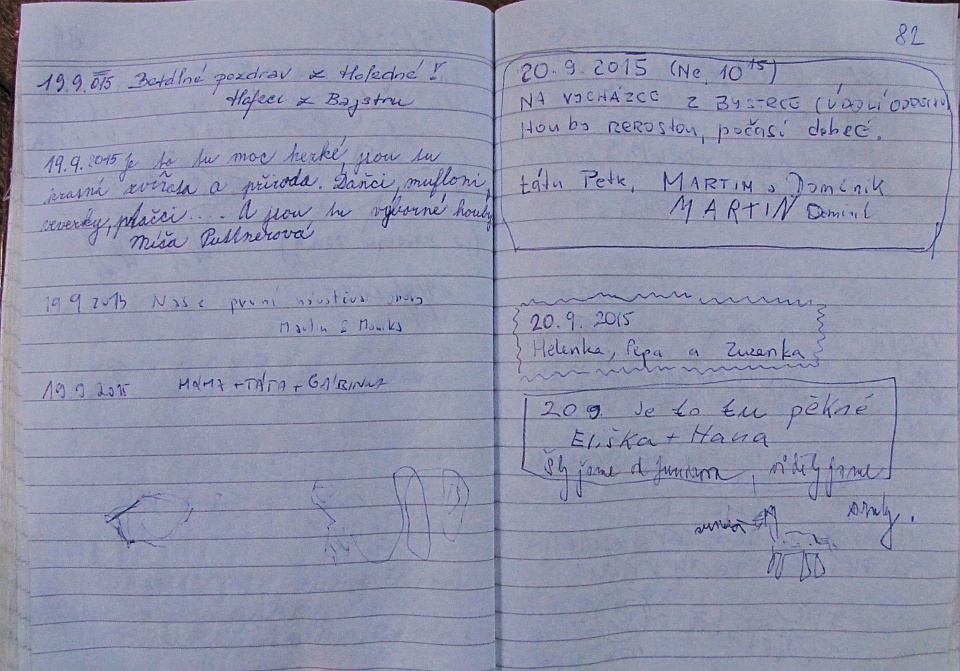 19.9.2015 pozdrav z !
z
19.9.2015 Je to tu moc hezké, jsou tu
krásná zvířata a příroda. Daňci, mufloni,
veverky, ptáčci.... A jsou tu výborné houby
Míša
19 9 2015 Naše první návštěva
Martin & Monika
19 9 2015 MÁMA+TÁTA+GÁBINKA
82
20.9.2015 (Ne, 10 15)
NA VYCHÁZCE Z BYSTRÉ (ÚDOLÍ
Houby NEROSTOU, počasí dobré.
táta Petr, MARTIN a Dominik
MARTIN Dominik
20.9.2015
Helenka, Pepa a Zuzanka
20 9. Je to tu pěkné
Eliška + Hana
Šly jsme od , viděly jsme
srnky.